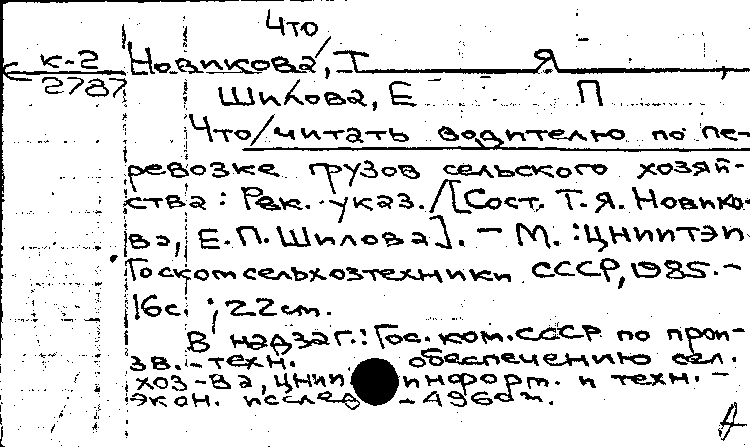 Что
к-2 Новикова, Т Я
2787 Шилова, Е П
Что/читать водителю по пе-
ревозке грузов сельского хозяй-
ства: Рек. указ./[Сост. Т.Я. Новико-
ва, Е.П. Шилова]. - М.: ЦНИИТЭИ
Госкомсельхозтехники СССР, 1985. -
16с.; 22см.
В надзаг.: Гос. ком. СССР по прои-
зв.-техн. обеспечению сел.
хоз-ва, ЦНИИ информ. и техн.-
экон. исслед - 4960т.